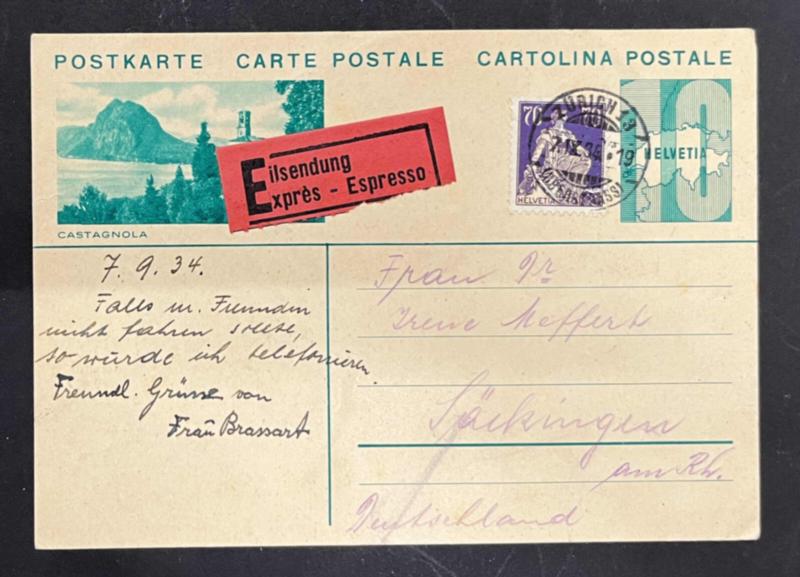 POSTKARTE CARTE POSTALE CARTOLINA POSTALE
CASTAGNOLA
Eilsendung
Exprès - Espresso
70
HELVETIA
ZÜRICH 13
7.IX.34. 19
10
HELVETIA
7. 9. 34.
Falls m. Freundin
nicht fahren sollte,
so würde ich telefonieren.
Freundl. Grüsse von
Frau Brassart
Frau Dr
Irene Meffert
Säckingen
am Rh.
Deutschland